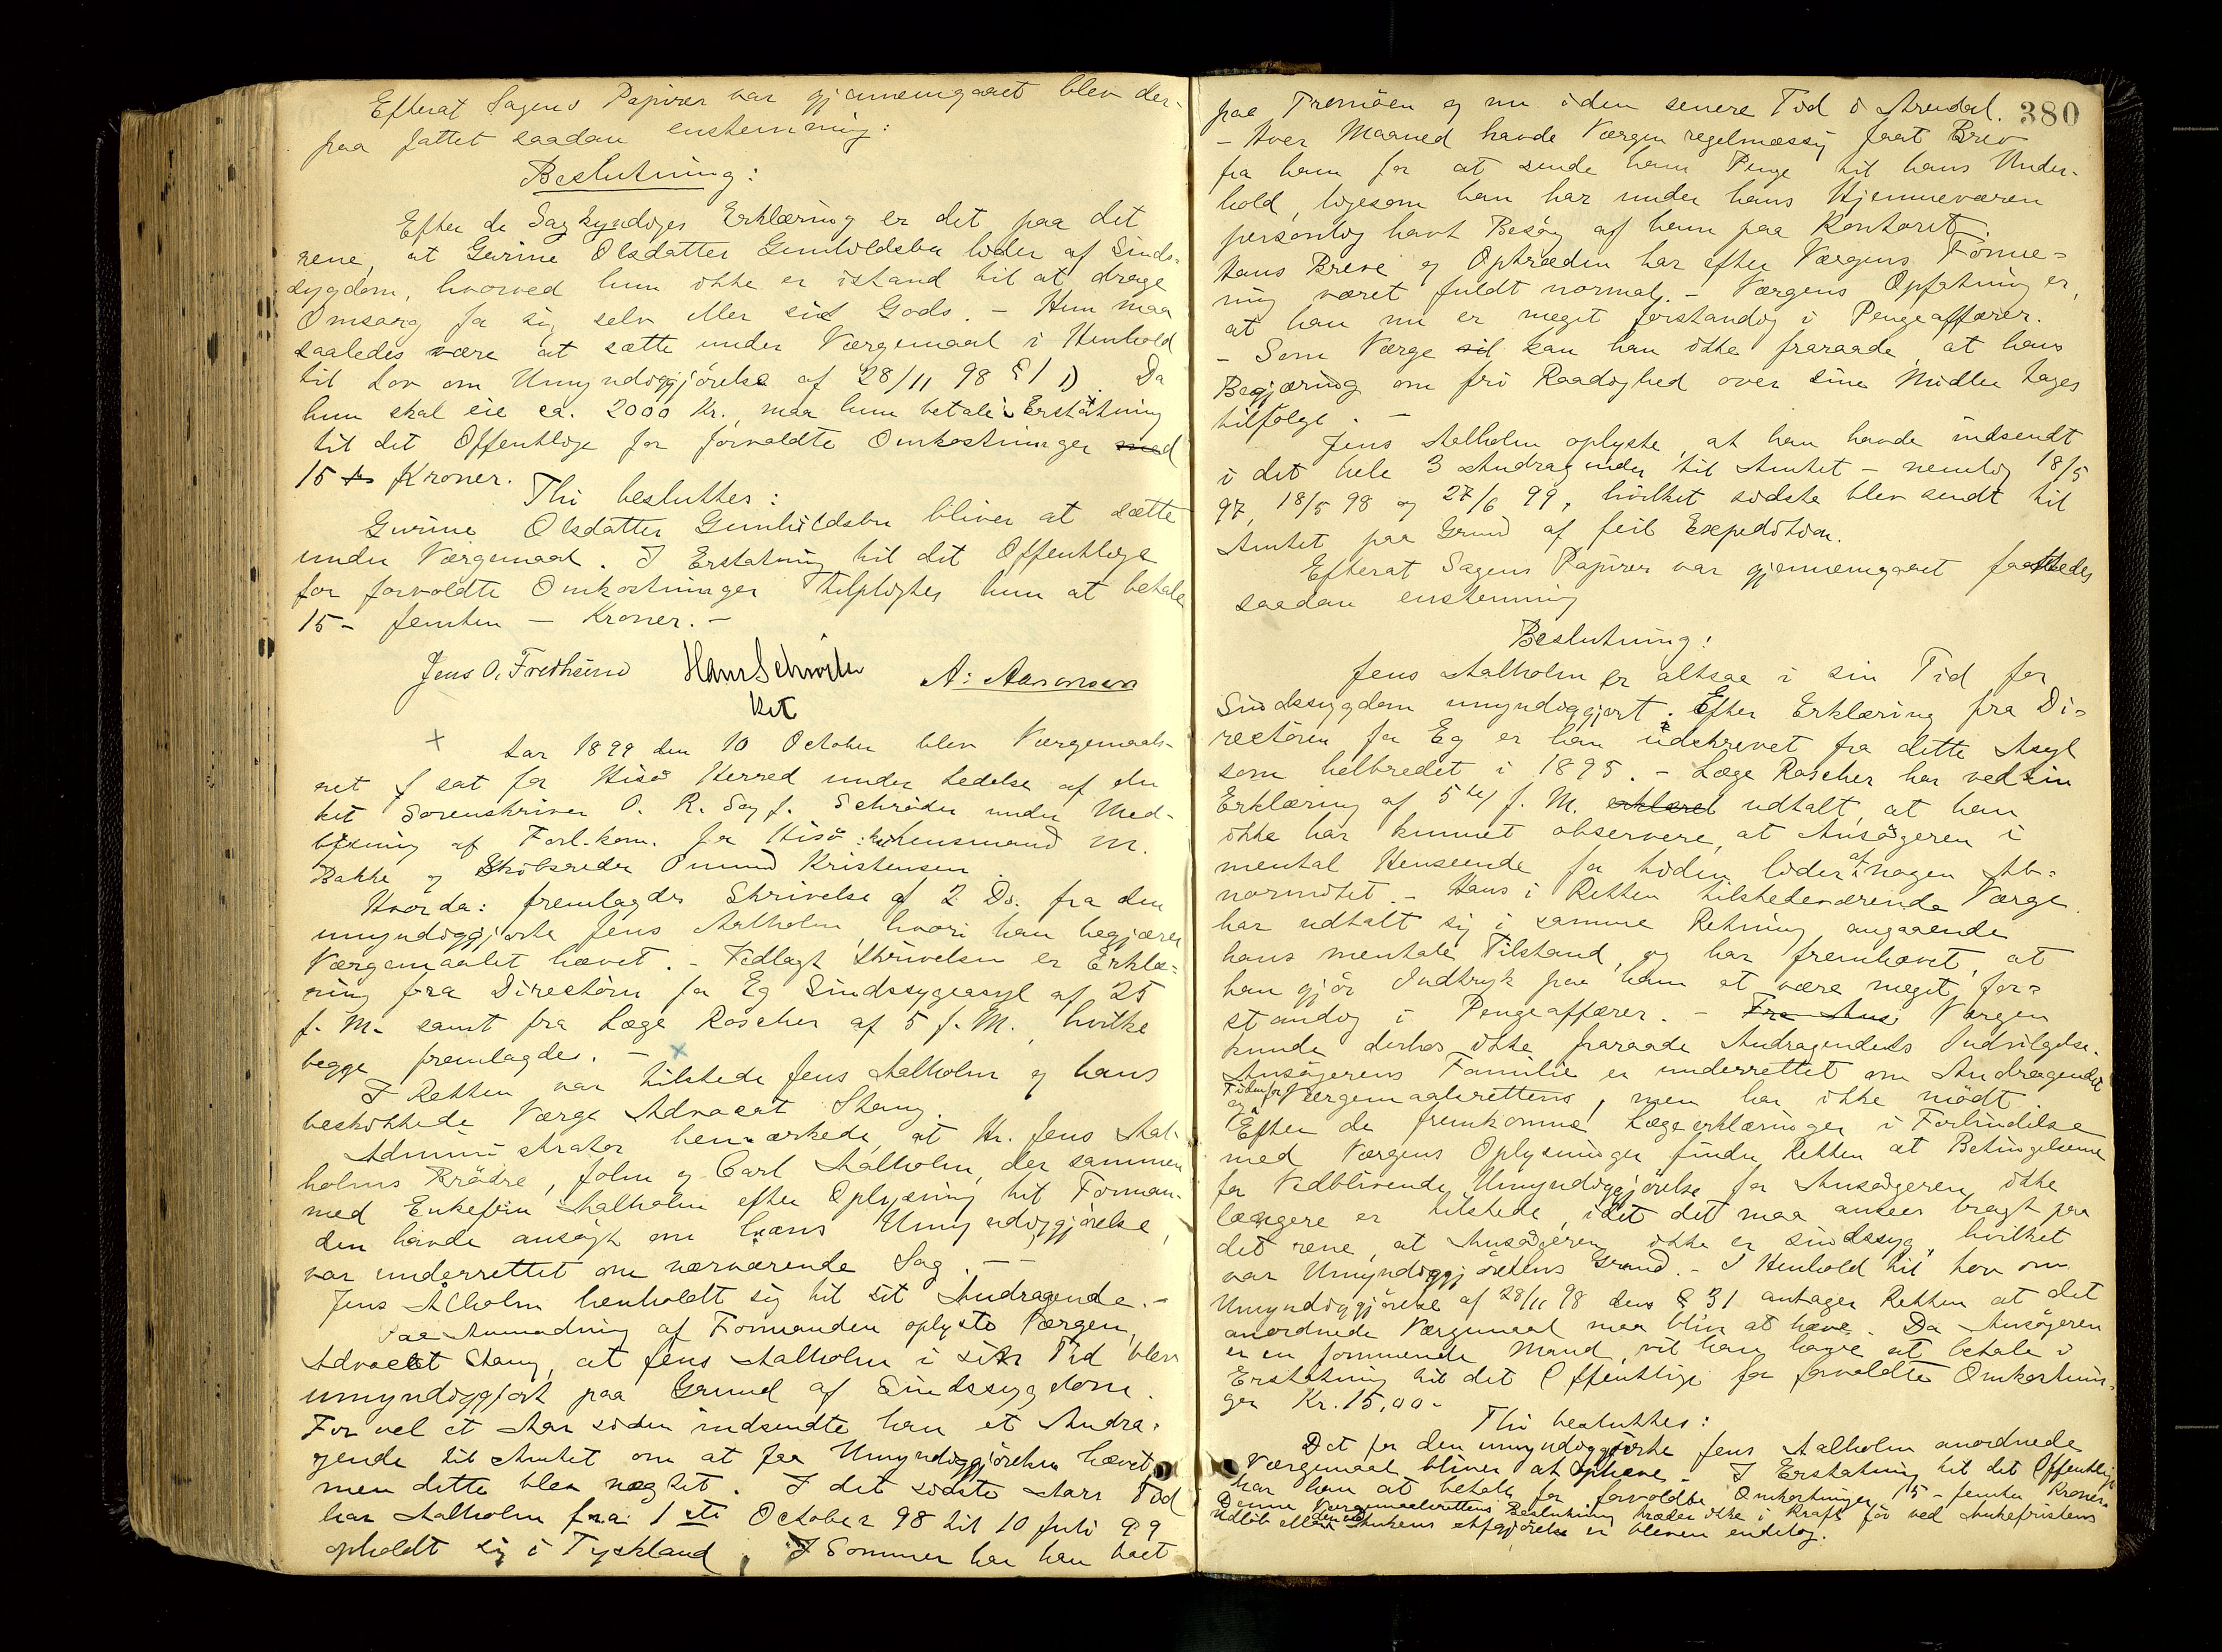 Efterat Sagens Papirer var gjennemgaaet blev der-
paa fattet saadan enstemmig:
Beslutning:
Efter de Sagkyndiges Erklæring er det paa det
rene, at Gurine Olsdatter Gunhildsbu lider af Sinds-
sygdom, hvorved hun ikke er istand til at drage
Omsorg for sig selv eller sit Gods. - Hun maa
saaledes være at sætte under Værgemaal i Henhold
til Lov om Umyndiggjørelse af 28/11 98 § 1 1). Da
hun skal eie ca. 2000 Kr., maa hun betale i Erstatning
til det Offentlige for forvoldte Omkostninger med
15 Kroner.
Thi besluttes:
Gurine Olsdatter Gunhildsbu bliver at sætte
under Værgemaal. I Erstatning til det Offentlige
for forvoldte Omkostninger tilpligtes hun at betale
15 - femten - Kroner. -
Jens O. Fredhsund Hans Schrøder A. Aanonsen
kst
Aar 1899 den 10 October blev Værgemaals-
ret sat for Hisø Herred under Ledelse af den
kst Sorenskriver O. R. Sag f. Schrøder under Med-
virkning af Forl. kom. for Hisø: Lensmand M.
Bakke og Skibsreder Omund Kristensen.
Hvorda: fremlagdes Skrivelse af 2 Ds. fra den
umyndiggjorte Jens Aalholm, hvori han begjærer
Værgemaalet hævet. - Vedlagt Skrivelsen er Erklæ-
ring fra Directøren for Eg Sindssygeasyl af 25
f. M. samt fra Læge Roscher af 5 f. M., hvilke
begge fremlagdes. -
I Retten var tilstede Jens Aalholm og hans
beskikkede Værge Advocat Stang.
Administrator bemærkede, at Hr. Jens Aal-
holms Brødre, John og Carl Aalholm, der sammen
med Enkefru Aalholm efter Oplysning til Forman-
den havde ansøgt om hans Umyndiggjørelse,
var underrettet om nærværende Sag. -
Jens Alholm henholdt sig til sit Andragende. -
Paa Anmodning af Formanden oplyste Værgen,
Advocat Stang, at Jens Aalholm i sin Tid blev
umyndiggjort paa Grund af Sindssygdom.
For vel et Aar siden indsendte han et Andra-
gende til Amtet om at faa Umyndiggjørelsen hævet,
men dette blev nægtet. I det sidste Aars Tid
har Aalholm fra 1ste October 98 til 10 Juli 99
opholdt sig i Tyskland, I Sommer har han boet
380
paa Tromøen og nu i den senere Tid i Arendal.
- Hver Maaned havde Værgen regelmæssig faat Brev
fra ham for at sende ham Penge til hans Under-
hold, ligesom han har under hans Hjemmeværen
personlig havt Besøg af ham paa Kontoret.
Hans Breve og Optræden har efter Værgens Forme-
ning været fuldt normal. - Værgens Opfatning er,
at han nu er meget forstandig i Pengeaffærer.
- Som Værge sit kan han ikke fraraade, at hans
Begjæring om fri Raadighed over sine Midler tages
tilfølge. -
Jens Aalholm oplyste, at han havde indsendt
i det hele 3 Andragender til Amtet - nemlig 18/5
97, 18/5 98 og 27/6 99, hvilket sidste blev sendt til
Amtet paa Grund af feil Expedition.
Efterat Sagens Papirer var gjennemgaaet fattedes
saadan enstemmig
Beslutning:
Jens Aalholm er altsaa i sin Tid for
Sindssygdom umyndiggjort. Efter Erklæring fra Di-
rectøren for Eg er han udskrevet fra dette Asyl
som helbredet i 1895. - Læge Roscher har ved sin
Erklæring af 5te f. M. erklæret udtalt, at han
ikke har kunnet observere, at Ansøgeren i
mental Henseende for tiden lider af nogen Ab-
normitet. - Hans i Retten tilstedeværende Værge
har udtalt sig i samme Retning angaaende
hans mentale Tilstand, og har fremhævet, at
han gjør Indtryk paa ham at være meget for-
standig i Pengeaffærer. - Fra Ans Værgen
kunde derhos ikke fraraade Andragendets Indvilgelse.
Ansøgerens Familie er underrettet om Andragendet
og Tiden for Værgemaalsrettens, men har ikke mødt.
Efter de fremkomne Lægeerklæringer i Forbindelse
med Værgens Oplysninger finder Retten at Betingelserne
for Vedblivende Umyndiggjørelse for Ansøgeren ikke
længere er tilstede, idet det maa ansees bragt paa
det rene, at Ansøgeren ikke er sindssyg, hvilket
var Umyndiggjørelsens Grund. - I Henhold til Lov om
Umyndiggjørelse af 28/11 98 dens § 31 antager Retten at det
anordnede Værgemaal maa blive at hæve. Da Ansøgeren
er en formuende Mand, vil han have at betale i
Erstatning til det Offentlige for forvoldte Omkostnin-
ger Kr. 15,00.
Thi besluttes:
Det for den umyndiggjorte Jens Aalholm anordnede
Værgemaal bliver at ophæve. - I Erstatning til det Offentlige
har han at betale for forvoldte Omkostninger 15 - femten Kroner.
Denne Værgemaalsrettens Beslutning træder ikke i Kraft før ved Ankefristens
Udløb eller den ved Ankens Afgjørelse er bleven endelig.